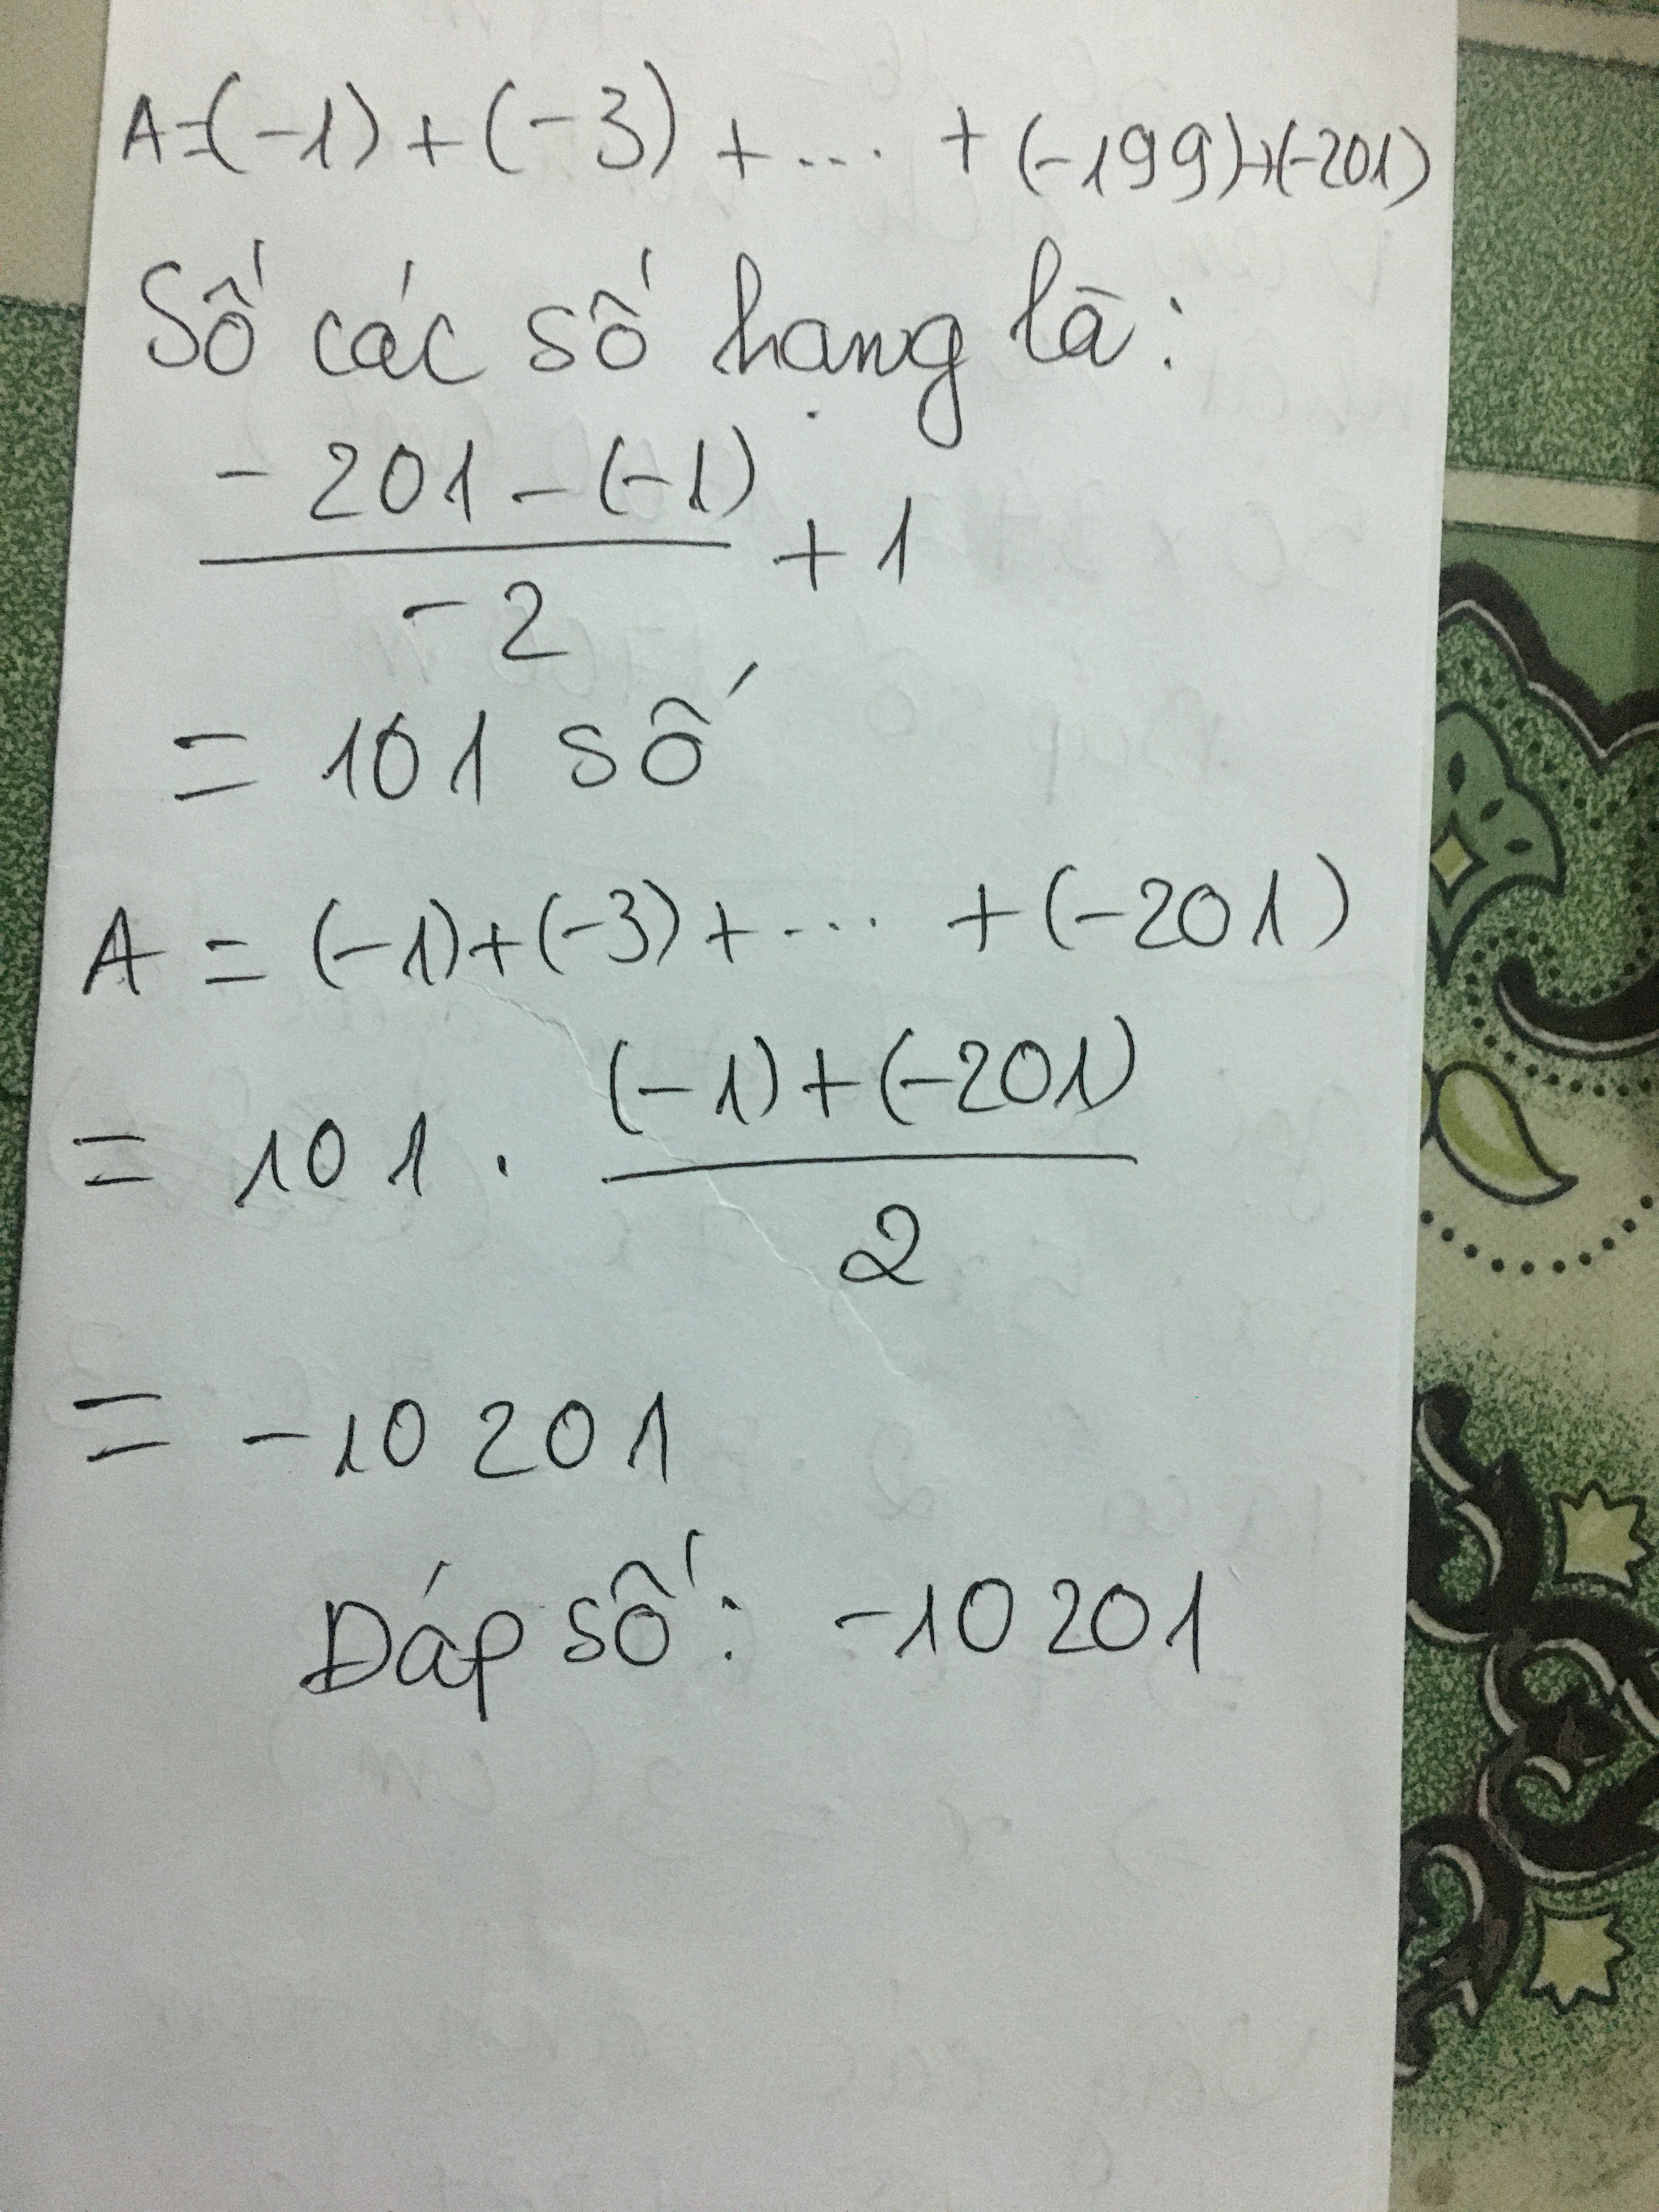 A=(-1)+(-3)+... +(-199)+(-201)
Số các số hạng là:
-201-(-1)
/-2 +1
= 101 số
A = (-1)+(-3)+... +(-201)
= 101 . (-1)+(-201)
/2
= -10201
Đáp số: -10201